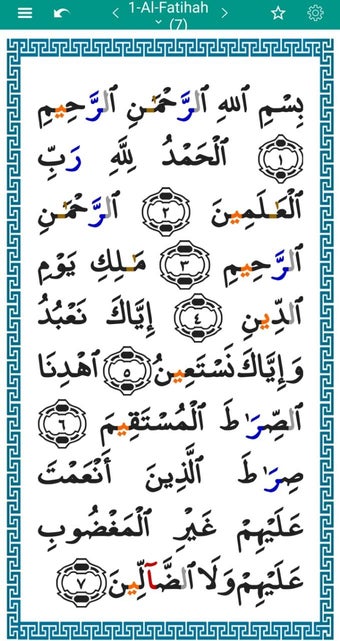 1-Al-Fatihah
(7)
بِسْمِ ٱللهِ ٱلرَّحْمَٰنِ ٱلرَّحِيمِ
١ ٱلْحَمْدُ لِلَّهِ رَبِّ
ٱلْعَٰلَمِينَ ٢ ٱلرَّحْمَٰنِ
ٱلرَّحِيمِ ٣ مَٰلِكِ يَوْمِ
ٱلدِّينِ ٤ إِيَّاكَ نَعْبُدُ
وَإِيَّاكَ نَسْتَعِينُ ٥ ٱهْدِنَا
ٱلصِّرَٰطَ ٱلْمُسْتَقِيمَ ٦
صِرَٰطَ ٱلَّذِينَ أَنْعَمْتَ
عَلَيْهِمْ غَيْرِ ٱلْمَغْضُوبِ
عَلَيْهِمْ وَلَا ٱلضَّآلِّينَ ٧